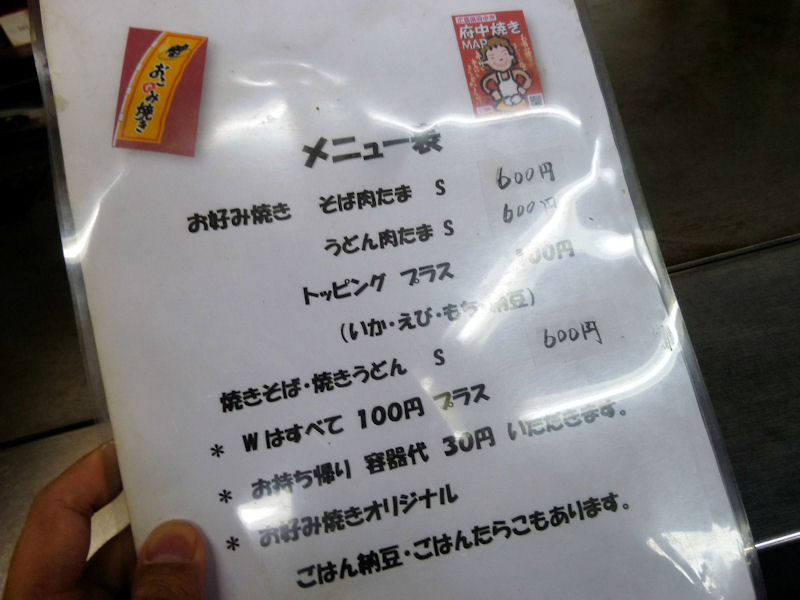 おこのみ焼き
広島県府中市
府中焼き
MAP
メニュー表
お好み焼き そば肉たま S 600円
うどん肉たま S 600円
トッピング プラス 100円
(いか・えび・もち・納豆)
焼きそば・焼きうどん S 600円
* Wはすべて 100円 プラス
* お持ち帰り 容器代 30円 いただきます。
* お好み焼きオリジナル
ごはん納豆・ごはんたらこもあります。